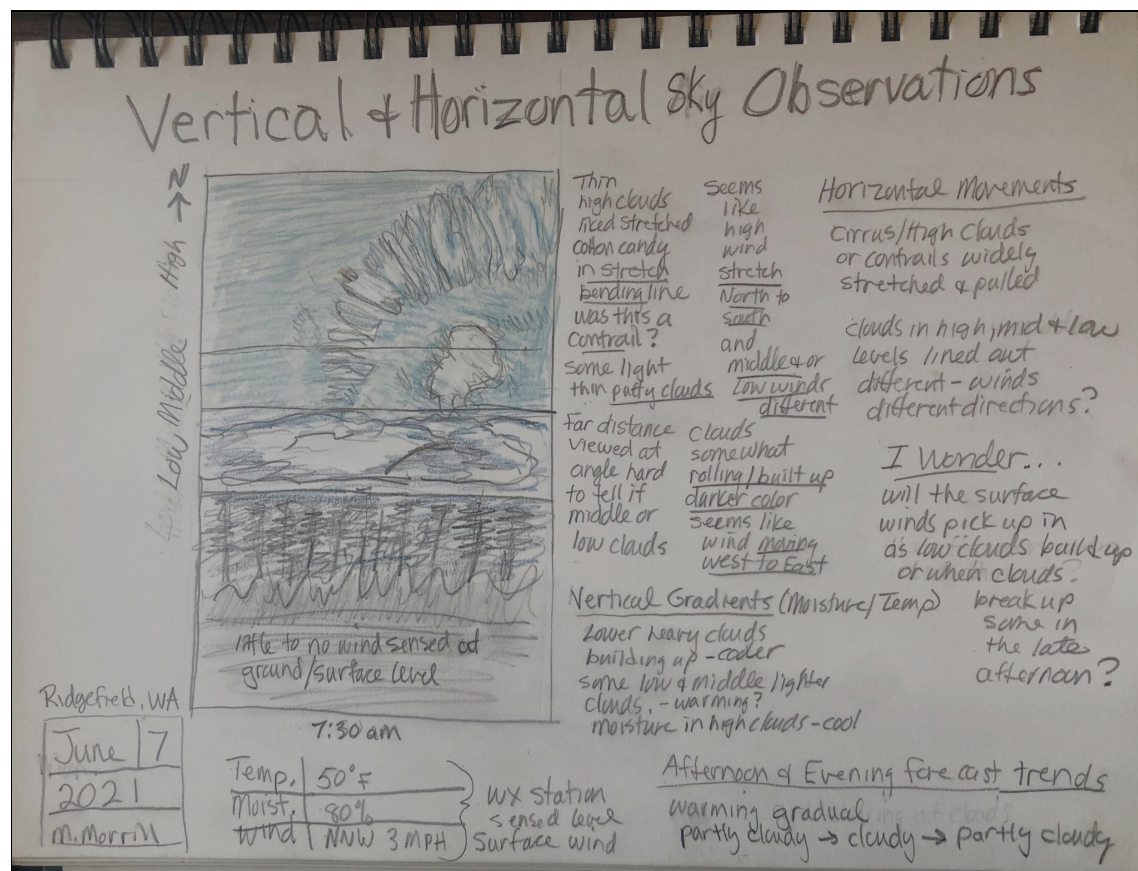 Vertical & Horizontal Sky Observations
N
High
Middle
Low
Thin
high clouds
liked stretched
cotton candy
in stretch
bending line
was this a
contrail?
some light
thin puffy clouds
Seems
like
high
wind
stretch
North to
south
and
middle & or
low winds
different
Far distance
viewed at
angle hard
to tell if
middle or
low clouds
clouds
somewhat
rolling/built up
darker color
seems like
wind moving
west to East
Horizontal Movements
Cirrus/High Clouds
or contrails widely
stretched & pulled
clouds in high, mid & low
levels lined out
different - winds
different directions?
I Wonder...
will the surface
winds pick up in
as low clouds build up
or when clouds
break up
some in
the late
afternoon?
Vertical Gradients (Moisture/Temp)
Lower heavy clouds
building up - cooler
some low & middle lighter
clouds. - warming?
moisture in high clouds - cool
little to no wind sensed at
ground/surface level
7:30 am
Ridgefield, WA
June 7
2021
M. Morrill
Temp. 50°F
Moist. 80%
Wind NNW 3 MPH
WX station
sensed level
Surface wind
Afternoon & Evening forecast trends
warming gradual
partly cloudy → cloudy → partly cloudy